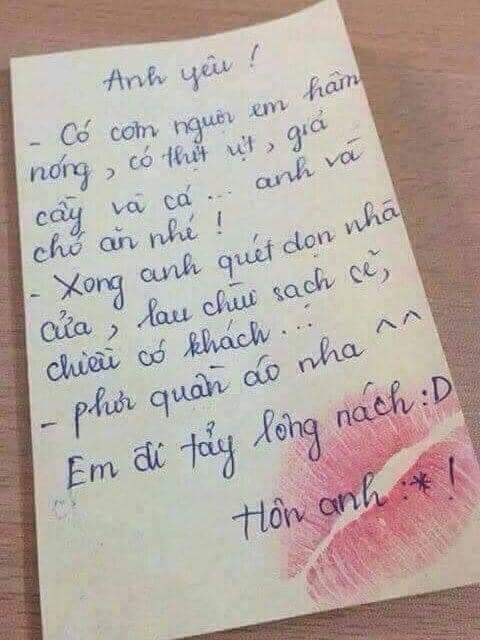 Anh yêu !
- Có cơm nguội em hâm
nóng, có thịt vịt, giả
cầy và cá ... anh và
chó ăn nhé !
- Xong anh quét dọn nhà
cửa, lau chùi sạch sẽ,
chiều có khách...
- phơi quần áo nha ^^
Em đi tẩy lông nách :D
Hôn anh :* !